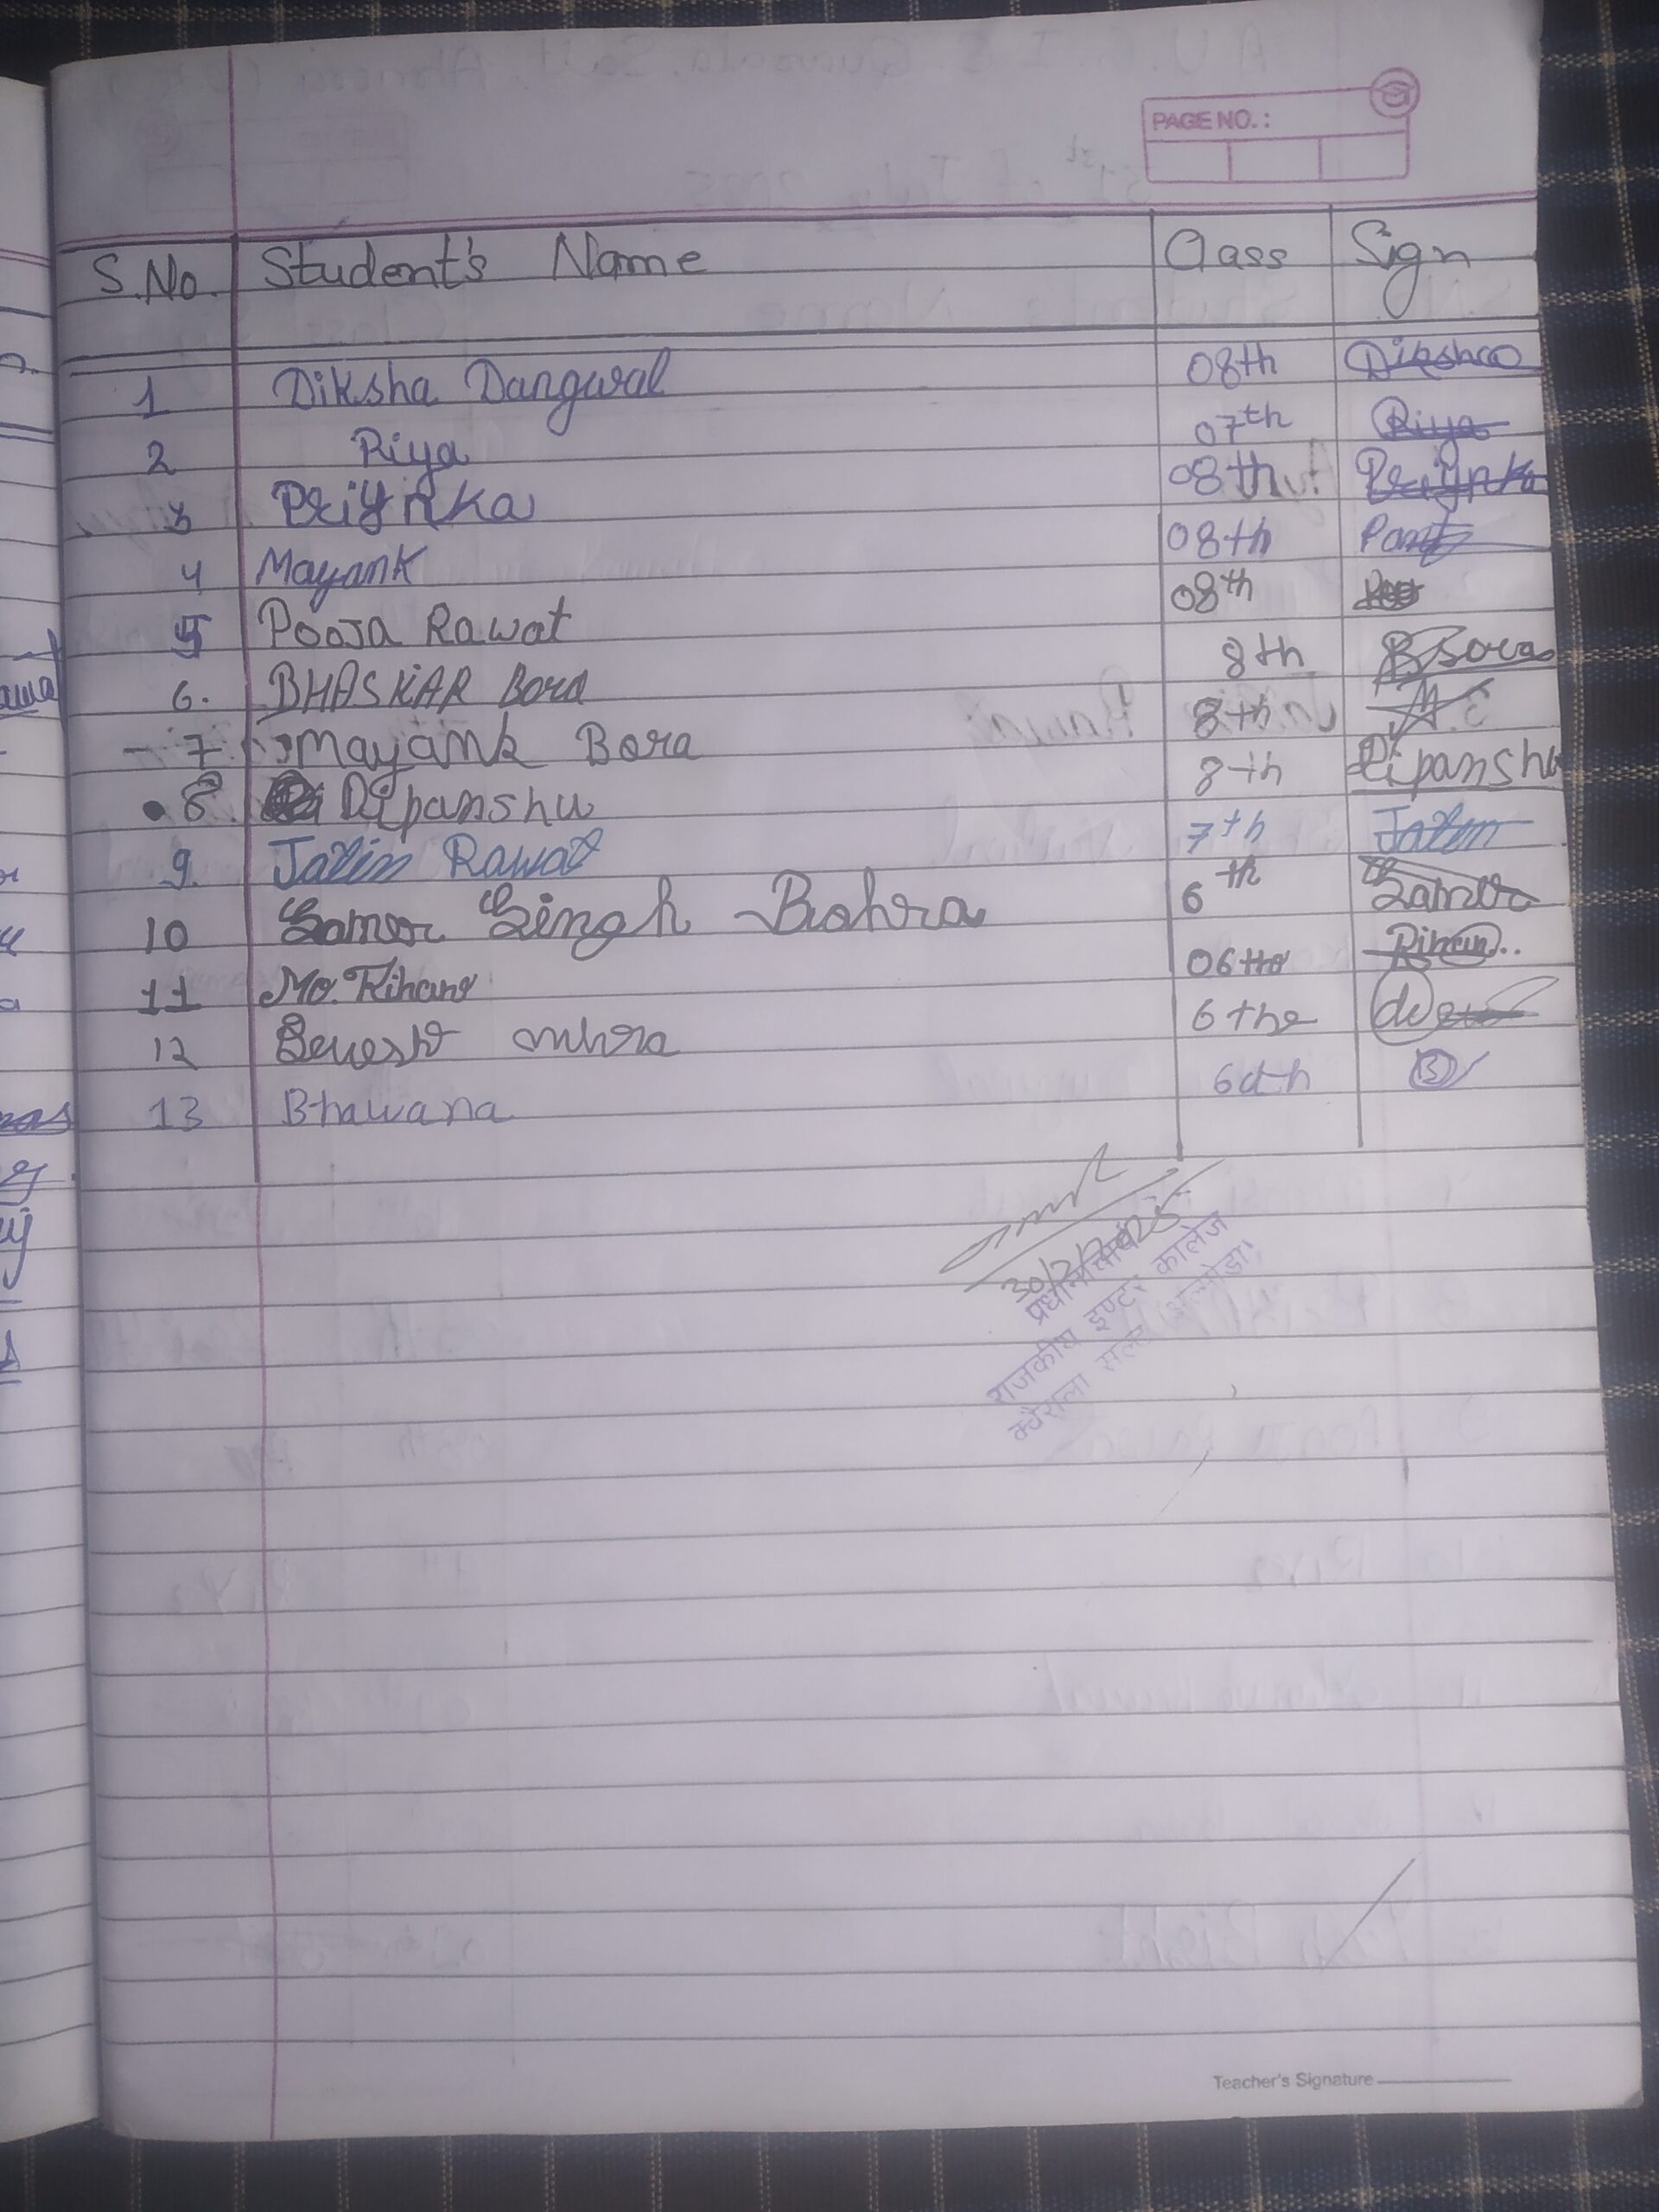 PAGE NO.:
S.No. Student's Name Class Sign
1 Diksha Dangwal 08th Diksha
2 Riya 07th Riya
3 Priynka 08th Priynka
4 Mayank 08th
5 Pooja Rawat 08th
6. BHASKAR Bora 8th BBora
7 Mayank Bora 8th
8. Dipanshu 8th Dipanshu
9. Jatin Rawat 7th Jatin
10 Samer Singh Bohra 6th
11 Mo. Rihan 06th Rihan
12 mhra 6the
13 Bhawana 6dth B
प्रधानाचार्य
राजकीय इण्टर कालेज
क्वैराला सल्ट अल्मोड़ा
Teacher's Signature